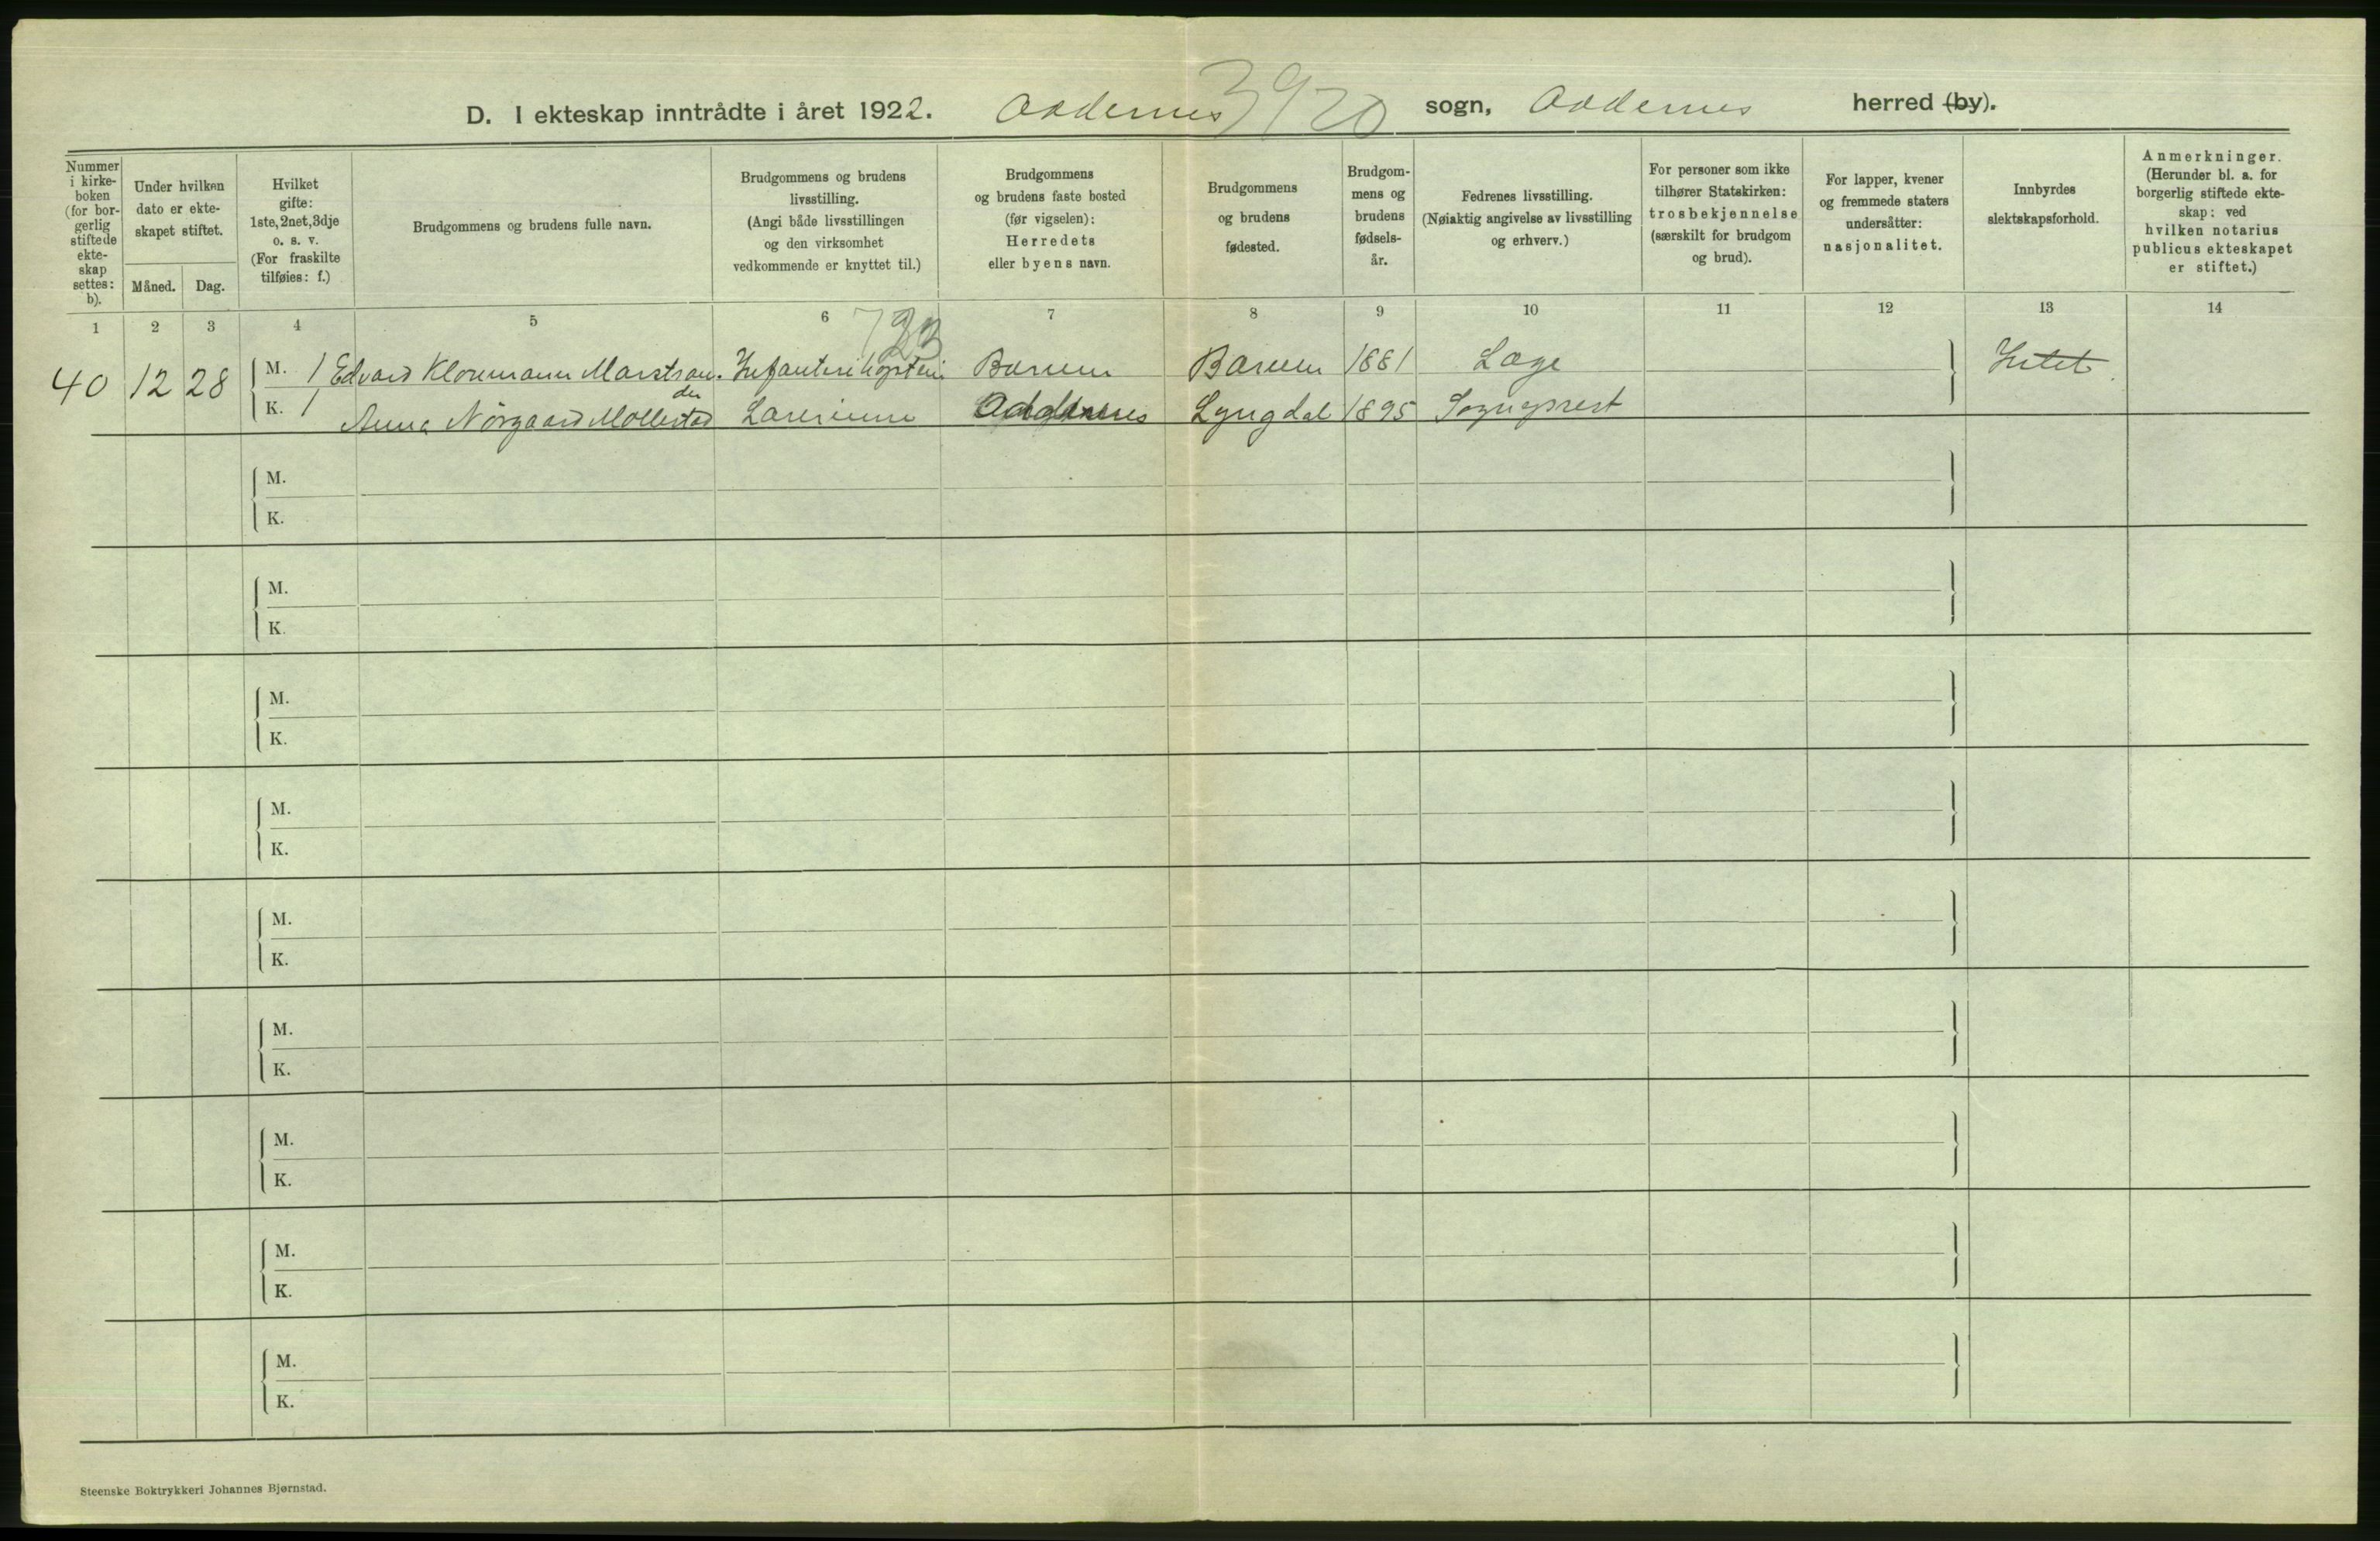 D. I ekteskap inntrådte i året 1922. Oddernes 3920 sogn, Oddernes herred (by).
Nummer i kirke-boken (for bor-gerlig stiftede ekte-skap settes: b).
Under hvilken dato er ekte-skapet stiftet.
Måned. Dag.
Hvilket gifte: 1ste, 2net, 3dje o. s. v. (For fraskilte tilføies: f.)
Brudgommens og brudens fulle navn.
Brudgommens og brudens livsstilling. (Angi både livsstillingen og den virksomhet vedkommende er knyttet til.)
Brudgommens og brudens faste bosted (før vigselen): Herredets eller byens navn.
Brudgommens og brudens fødested.
Brudgom-mens og brudens fødsels-år.
Fedrenes livsstilling. (Nøiaktig angivelse av livsstilling og erhverv.)
For personer som ikke tilhører Statskirken: trosbekjennelse (særskilt for brudgom og brud).
For lapper, kvener og fremmede staters undersåtter: nasjonalitet.
Innbyrdes slektskapsforhold.
Anmerkninger. (Herunder bl. a. for borgerlig stiftede ekte-skap: ved hvilken notarius publicus ekteskapet er stiftet.)
1 2 3 4 5 6 7 8 9 10 11 12 13 14
40 12 28 M. 1 Edvard Klouman Marstran- Infanterikaptein Bærum Bærum 1881 Læge Intet
der
K. 1 Anna Nørgaard Mollestad Lærerinne Oddernes Lyngdal 1895 Sogneprest
M.
K.
M.
K.
M.
K.
M.
K.
M.
K.
M.
K.
M.
K.
M.
K.
M.
K.
Steenske Boktrykkeri Johannes Bjørnstad.